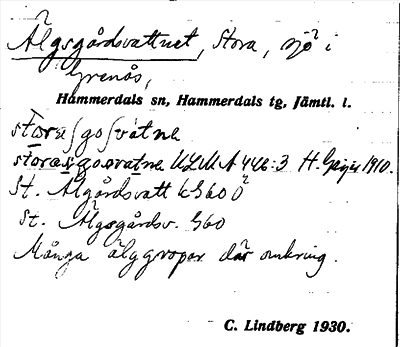 Älgsgårdsvattnet, Stora, sjö i
Grenås,
Hammerdals sn, Hammerdals tg, Jämtl. l.
stora ʃgoʃvatne
storasgosvatne ULMA 446:3 H. Geijer 1910.
St. Älgårdsvatt kS60Ö
St. Älgsgårdsv. S60
Många älggropar där omkring.
C. Lindberg 1930.